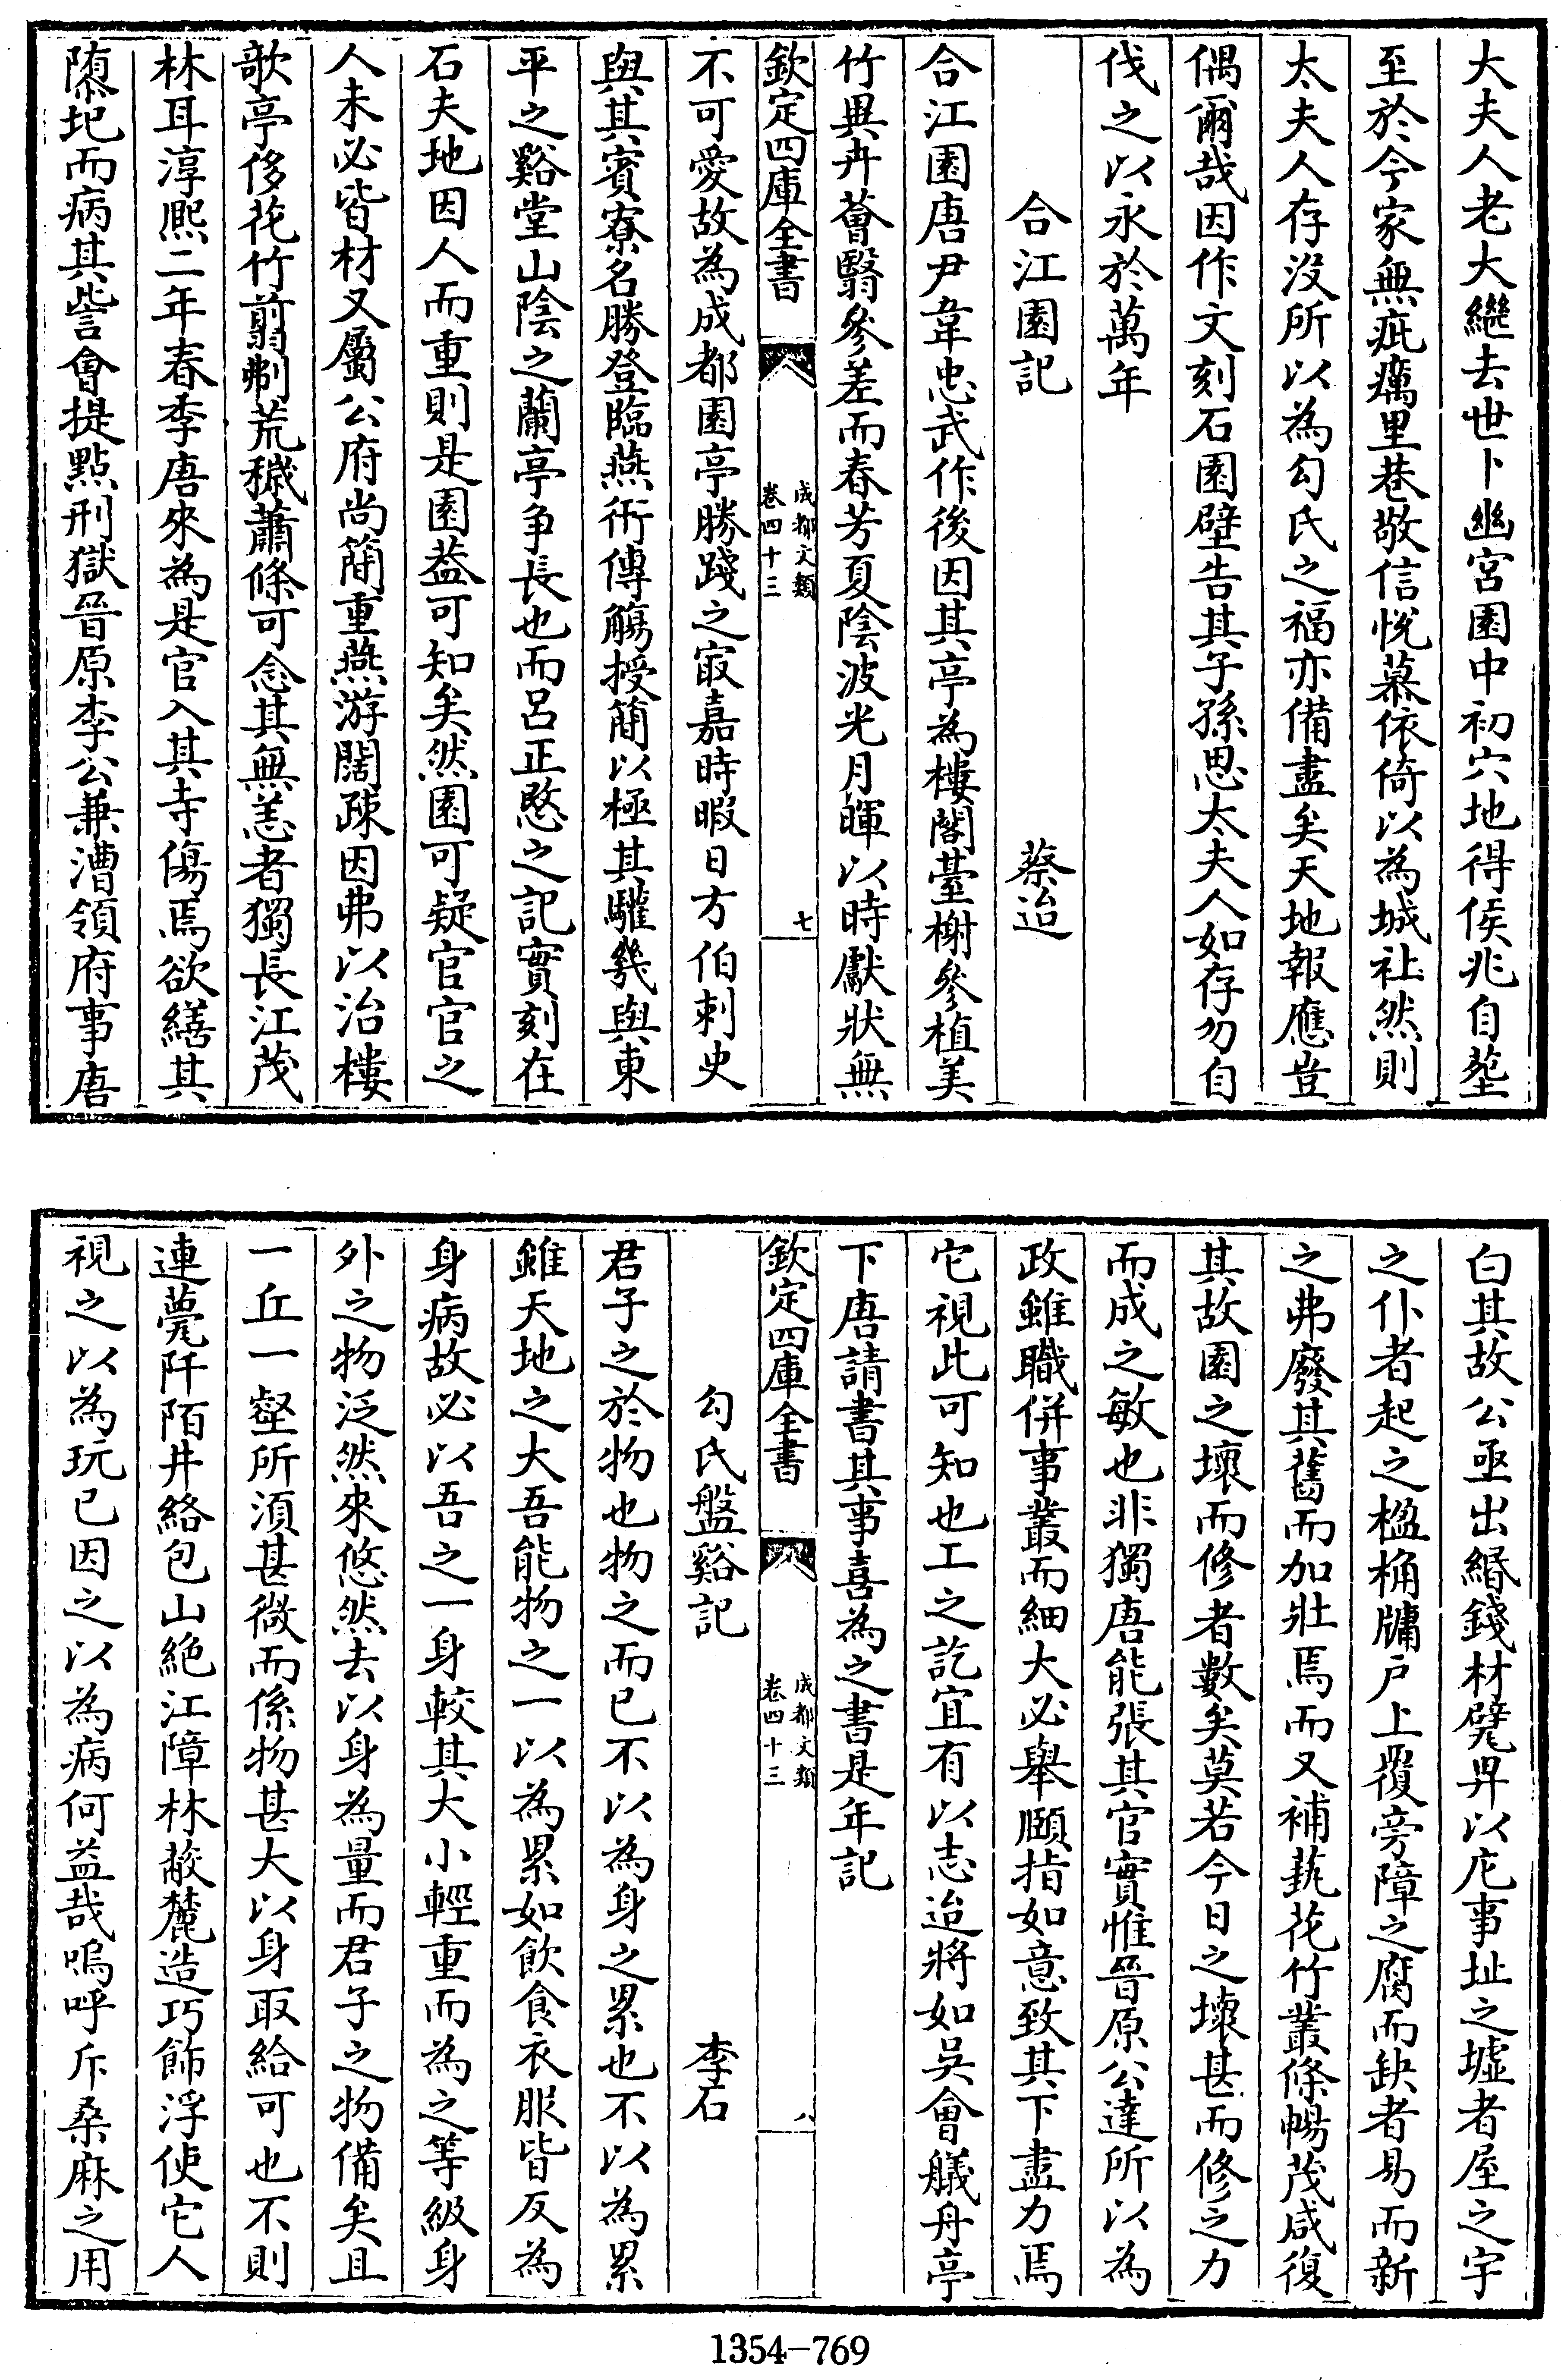 大夫人老大繼去世卜幽宮園中初穴地得侯兆自塟
至於今家無疵癘里巷敬信悅慕依倚以為城社然則
太夫人存沒所以為勾氏之福亦備盡矣天地報應豈
偶爾哉因作文刻石園壁告其子孫思太夫人如存勿自
伐之以永於萬年
合江園記 蔡迨
合江園唐尹韋忠武作後因其亭為樓閣臺榭參植美
竹異卉薈翳參差而春芳夏陰波光月暉以時獻狀無
欽定四庫全書 成都文類 卷四十三 七
不可愛故為成都園亭勝踐之㝡嘉時暇日方伯刺史
與其賓寮名勝登臨燕衎傳觴授簡以極其驩幾與東
平之谿堂山陰之蘭亭爭長也而呂正愍之記實刻在
石夫地因人而重則是園葢可知矣然園可疑官官之
人未必皆材又屬公府尚簡重燕游闊疎因弗以治樓
歌亭侈花竹翦剃荒穢蕭條可念其無恙者獨長江茂
林耳淳熙二年春季唐來為是官入其寺傷焉欲繕其
隳圮而病其訾會提點刑獄晉原李公兼漕領府事唐
白其故公亟出緡錢材甓畀以庀事址之墟者屋之宇
之仆者起之楹桷牖戶上覆旁障之腐而缺者易而新
之弗廢其舊而加壯焉而又補蓺花竹叢條暢茂咸復
其故園之壞而修者數矣莫若今日之壞甚而修之力
而成之敏也非獨唐能張其官實惟晉原公達所以為
政雖職併事叢而細大必舉頤指如意致其下盡力焉
它視此可知也工之訖宜有以志迨將如吳會艤舟亭
下唐請書其事喜為之書是年記
欽定四庫全書 成都文類 卷四十三 八
勾氏盤谿記 李石
君子之於物也物之而已不以為身之累也不以為累
雖天地之大吾能物之一以為累如飲食衣服皆反為
身病故必以吾之一身較其大小輕重而為之等級身
外之物泛然來悠然去以身為量而君子之物備矣且
一丘一壑所湏甚微而係物甚大以身取給可也不則
連甍阡陌井絡包山絕江障林蔽麓造巧飾浮使它人
視之以為玩已因之以為病何益哉嗚呼斥桑麻之用
1354-769